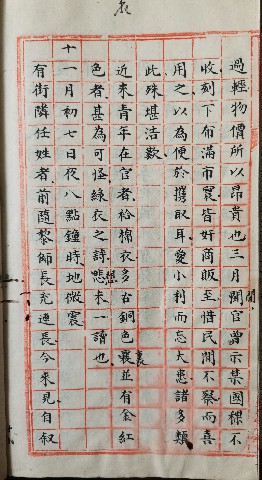 過輕物價所以昂貴也三月間官曾示禁國裸不
收刻下布滿市寰皆奸商販至惜民間不察而喜
用之以為便於攜取耳愛小利而忘大患諸多類
此殊堪浩歎
近來青年在官者袷棉衣多古銅色裏並有金紅
色者甚為可怪綠衣之詩想未一讀也
十一月初七日夜八點鐘時地微震
有街隣任姓者前隨黎師長充連長今來見自敘